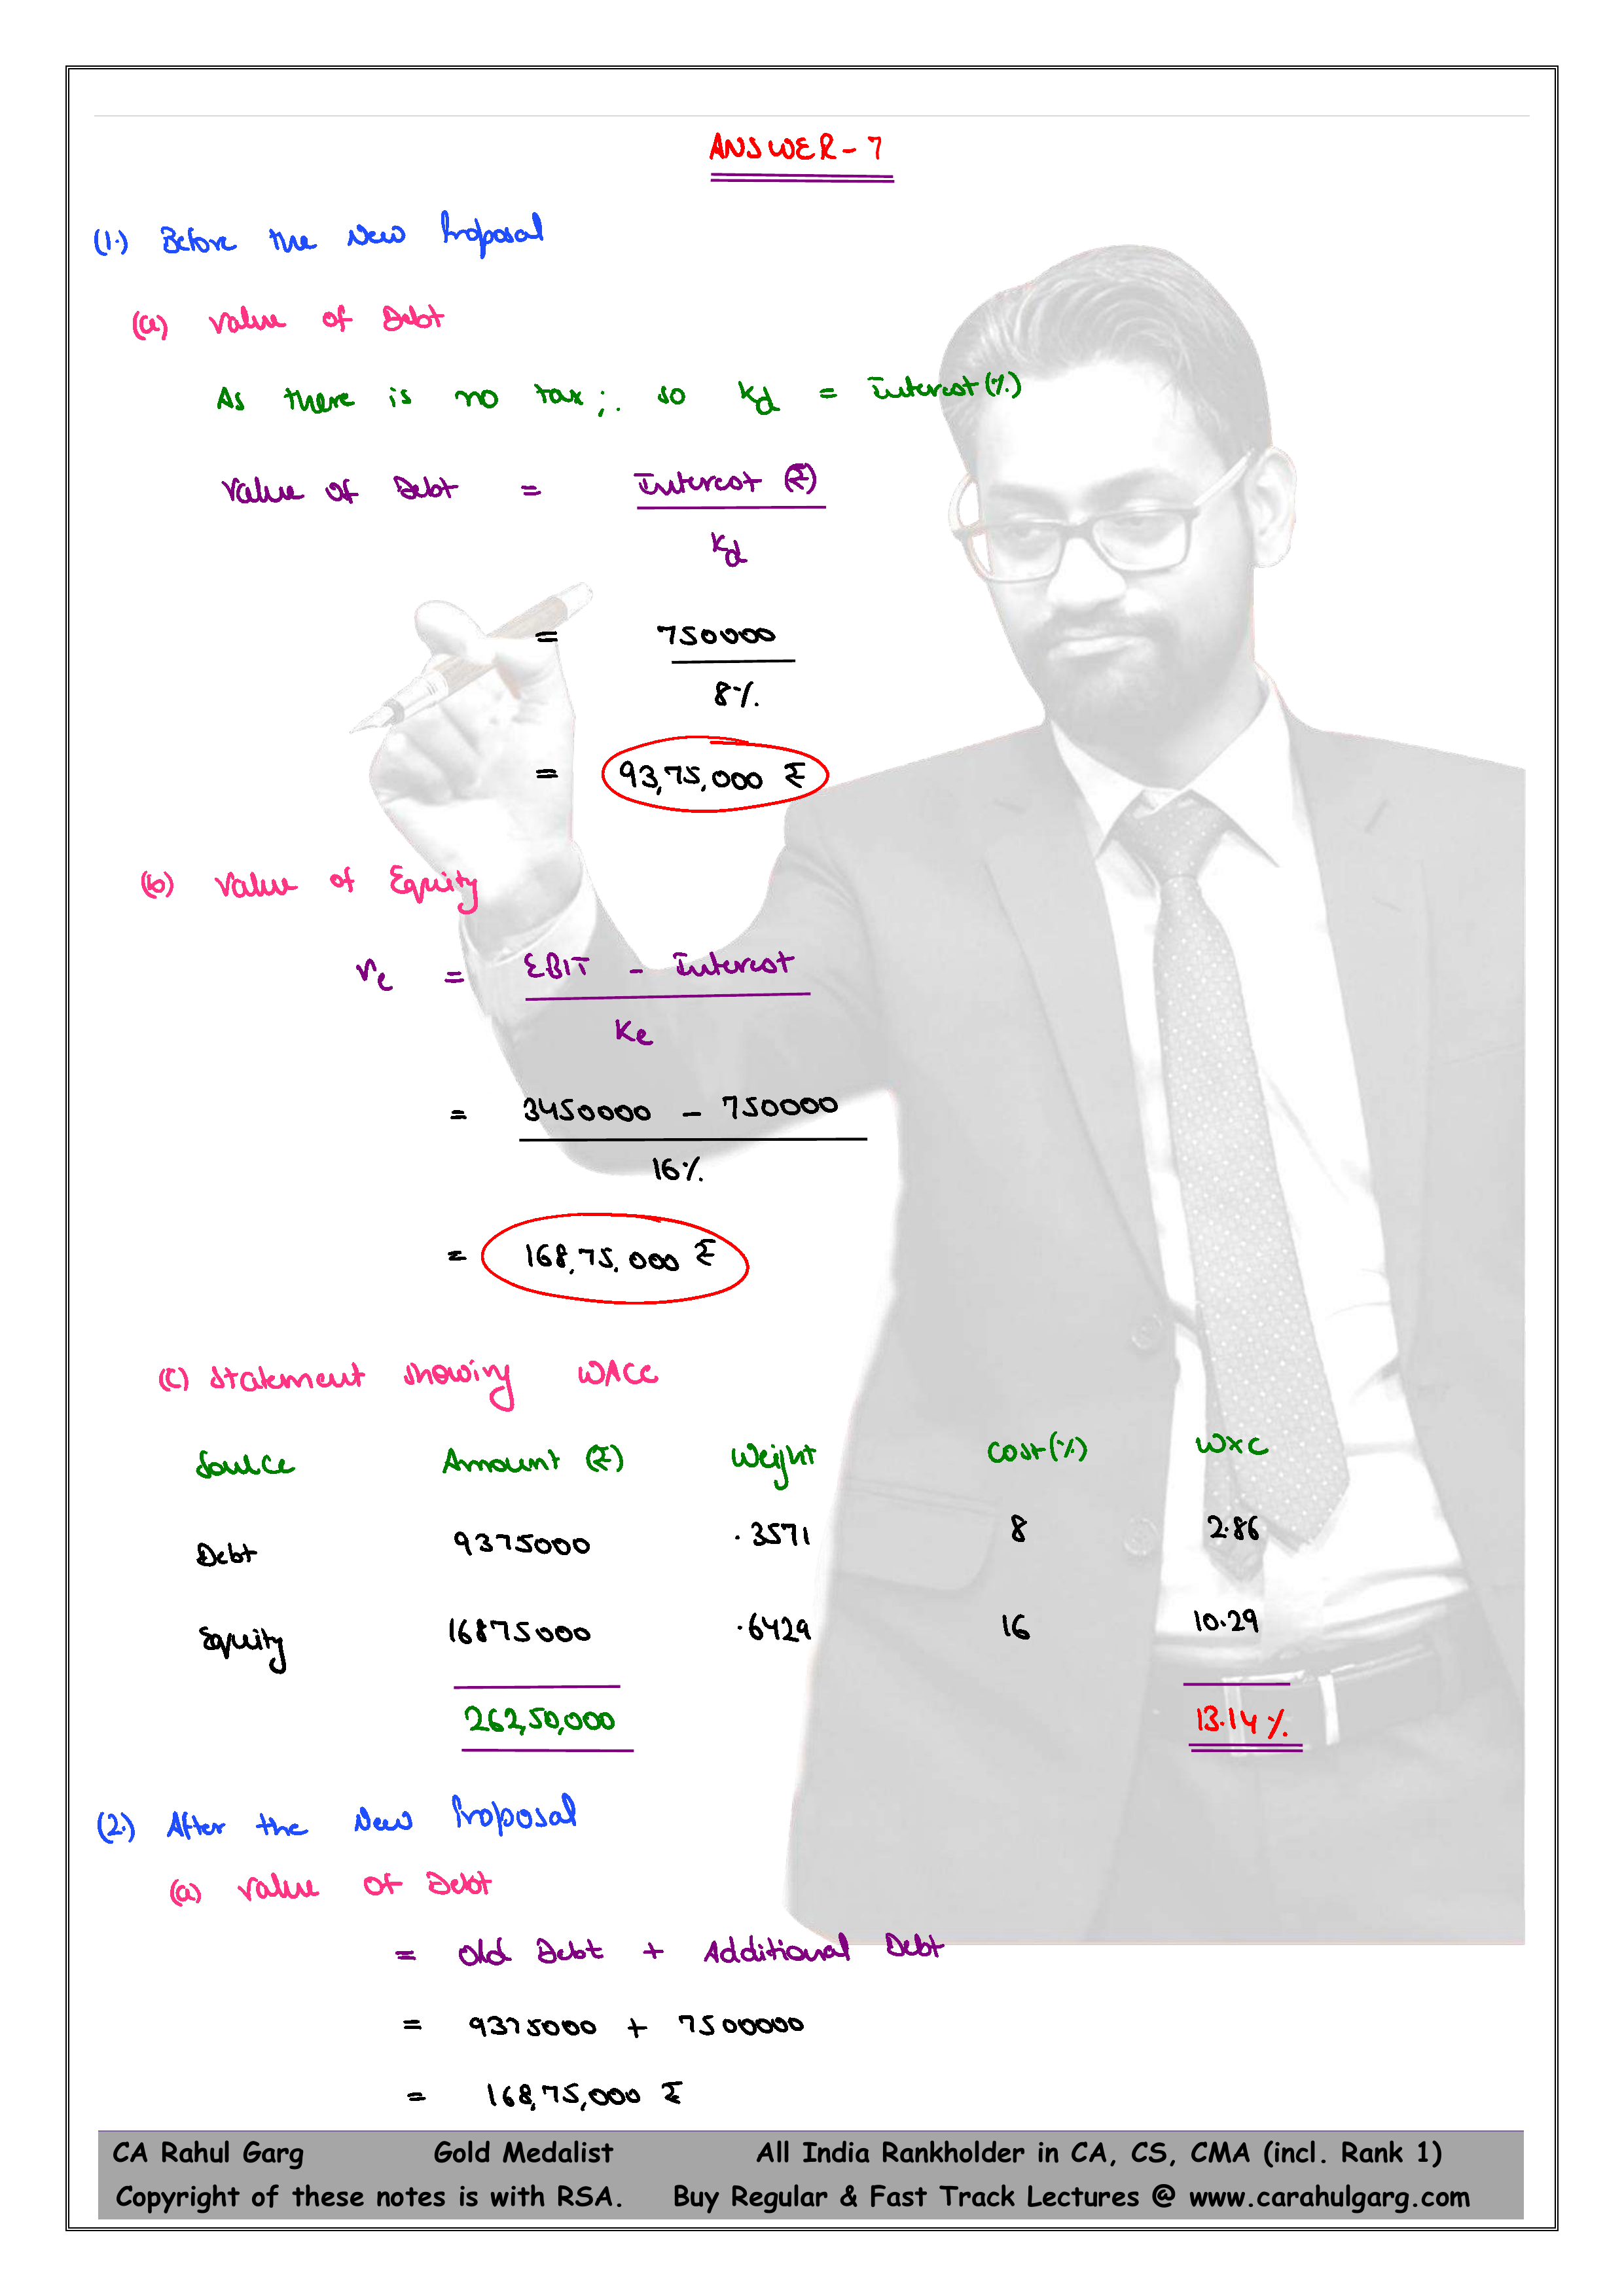 ANSWER-7
(1.) Before the New Proposal
(a) Value of Debt
As there is no tax; so Kd = Interest (%)
Value of Debt = Interest (₹)
Kd
= 750000
8%
= 93,75,000 ₹
(b) Value of Equity
Ve = EBIT - Interest
Ke
= 3450000 - 750000
16%
= 168,75,000 ₹
(c) Statement showing WACC
Source Amount (₹) Weight Cost (%) W×C
Debt 9375000 .3571 8 2.86
Equity 16875000 .6429 16 10.29
262,50,000 13.14%
(2.) After the New Proposal
(a) Value of Debt
= Old Debt + Additional Debt
= 9375000 + 7500000
= 168,75,000 ₹
CA Rahul Garg Gold Medalist All India Rankholder in CA, CS, CMA (incl. Rank 1)
Copyright of these notes is with RSA. Buy Regular & Fast Track Lectures @ www.carahulgarg.com